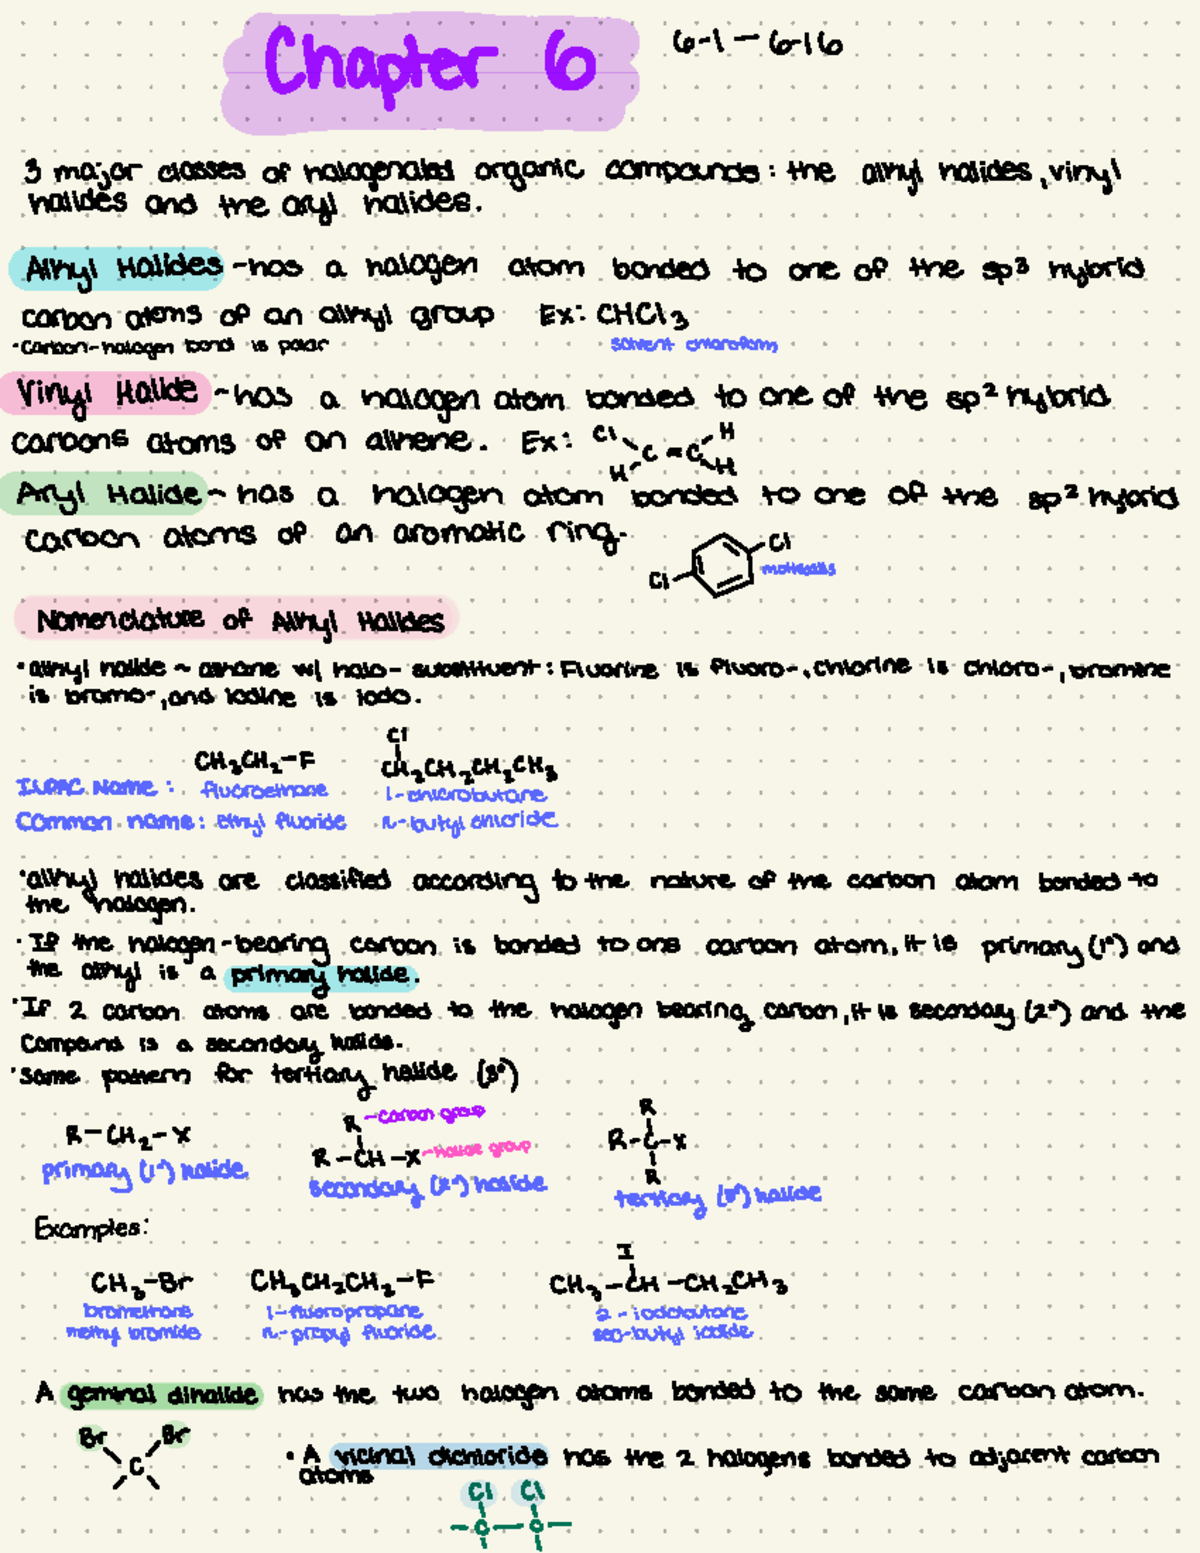 Chapter 6 6-1 - 6-16
3 major classes of halogenated organic compounds: the alkyl halides, vinyl
halides and the aryl halides.
Alkyl Halides - has a halogen atom bonded to one of the sp³ hybrid
carbon atoms of an alkyl group Ex: CHCl₃
• Carbon-halogen bond is polar solvent chloroform
Vinyl Halide - has a halogen atom bonded to one of the sp² hybrid
carbons atoms of an alkene. Ex: Cl H
C=C
H H
Aryl Halide - has a halogen atom bonded to one of the sp² hybrid
carbon atoms of an aromatic ring.
Cl
Cl
Nomenclature of Alkyl Halides
• alkyl halide ~ alkane w/ halo- substituent: Fluorine is fluoro-, chlorine is chloro-, bromine
is bromo-, and iodine is iodo.
Cl
CH₃CH₂-F CH₂CH₂CH₂CH₃
IUPAC Name: fluoroethane 1-chlorobutane
Common name: ethyl fluoride n-butyl chloride
• alkyl halides are classified according to the nature of the carbon atom bonded to
the halogen.
• If the halogen-bearing carbon is bonded to one carbon atom, it is primary (1°) and
the alkyl is a primary halide.
• If 2 carbon atoms are bonded to the halogen bearing carbon, it is secondary (2°) and the
Compound is a secondary halide.
• Same pattern for tertiary halide (3°)
R - Carbon group R
R-CH₂-X R-CH-X - Halide group R-C-X
R
primary (1°) halide secondary (2°) halide tertiary (3°) halide
Examples:
I
CH₃-Br CH₃CH₂CH₂-F CH₃-CH-CH₂CH₃
bromethane 1-fluoropropane 2-iodobutane
methyl bromide n-propyl fluoride sec-butyl iodide
A geminal dihalide has the two halogen atoms bonded to the same carbon atom.
Br Br
C
• A vicinal dichloride has the 2 halogens bonded to adjacent carbon
atoms
Cl Cl
-C-C-